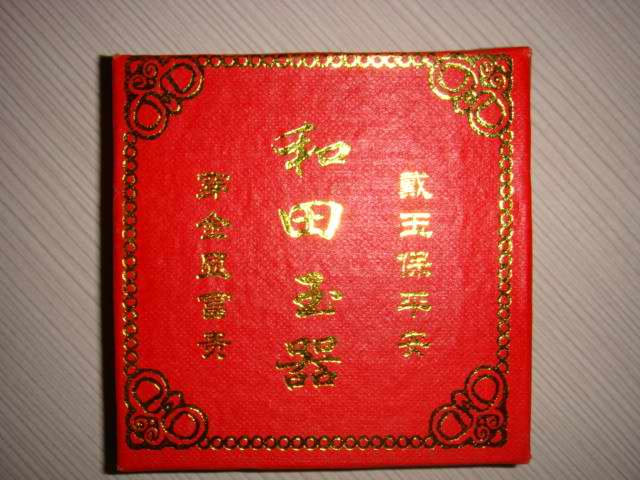 戴玉保平安
和田玉器
穿金显富贵